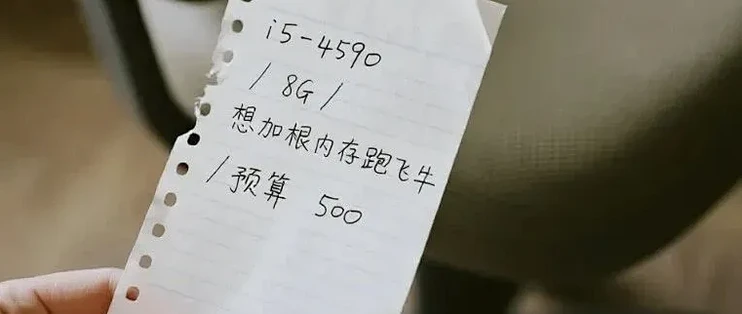 i5-4590
/ 8G /
想加根内存跑飞牛
/预算 500